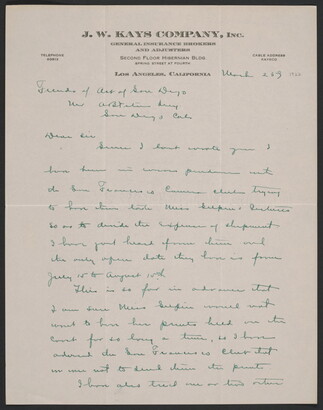 J. W. KAYS COMPANY, INC.
GENERAL INSURANCE BROKERS
AND ADJUSTERS
TELEPHONE
SECOND FLOOR HIBERNIAN BLDG
CABLE ADDRESS
KAYSCO
SPRING STREET AT FOURTH
LOS ANGELES, CALIFORNIA
March
Friends of Art of San Diego
San Diego Calif
Dear Sir
Since I last wrote you I
have been in correspondence with
the San Francisco Camera Club trying
to have them take Miss prints
so as to divide the expense of shipment
I have just heard from them and
the only open date they have is from
July 15 to August 15th
This is so far in advance that
I am sure Miss would not
want to have her prints held on the
Coast for so long a time, so I have
advised the San Francisco Club that
we can not to send them the prints
I have also tried one or two other